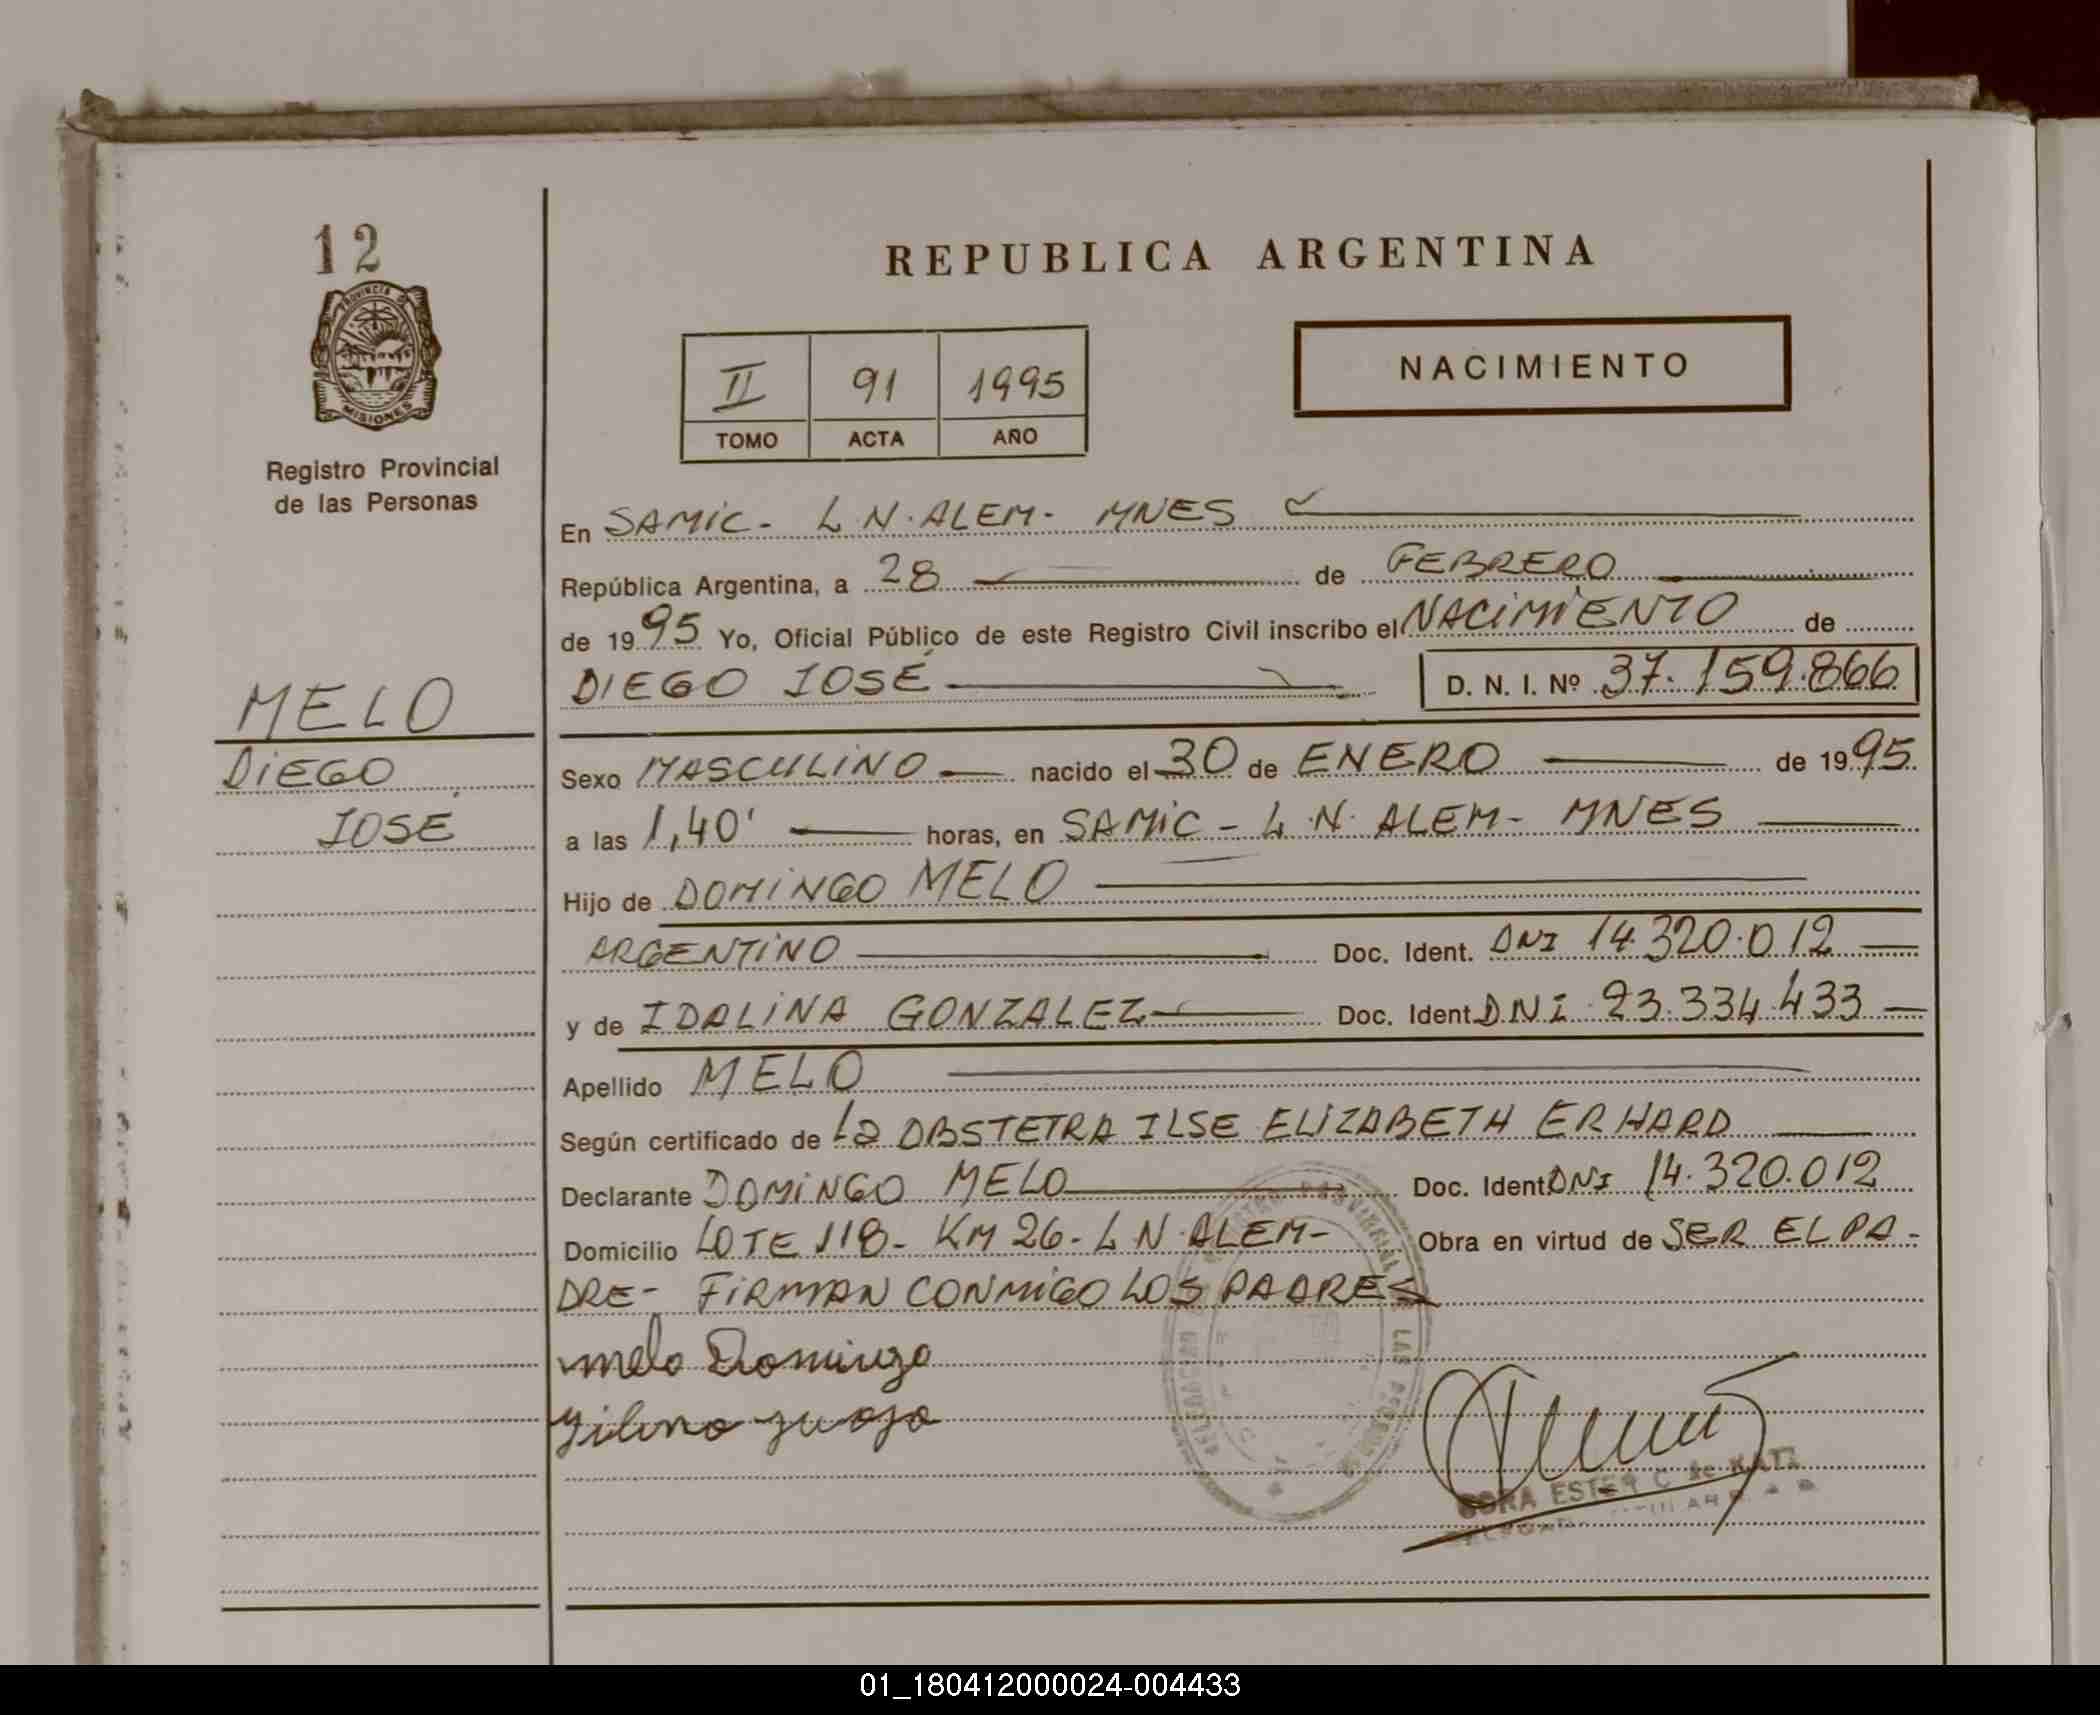 12
PROVINCIA DE
MISIONES
Registro Provincial
de las Personas
MELO
DIEGO
JOSÉ
REPUBLICA ARGENTINA
II 91 1995
TOMO ACTA AÑO
NACIMIENTO
En SAMIC - L.N. ALEM - MNES
República Argentina, a 28 de FEBRERO
de 1995 Yo, Oficial Público de este Registro Civil inscribo el NACIMIENTO de
DIEGO JOSÉ D. N. I. Nº 37.159.866
Sexo MASCULINO nacido el 30 de ENERO de 1995
a las 1,40' horas, en SAMIC - L.N. ALEM - MNES
Hijo de DOMINGO MELO
ARGENTINO Doc. Ident. DNI 14.320.012
y de IDALINA GONZALEZ Doc. Ident. DNI 23.334.433
Apellido MELO
Según certificado de La OBSTETRA ILSE ELIZABETH ERHARD
Declarante DOMINGO MELO Doc. Ident. DNI 14.320.012
Domicilio LOTE 118 - KM 26 - L N. ALEM - Obra en virtud de SER EL PA-
DRE - FIRMAN CONMIGO LOS PADRES
melo Domingo
CORA ESTER C de KATZ
01_180412000024-004433